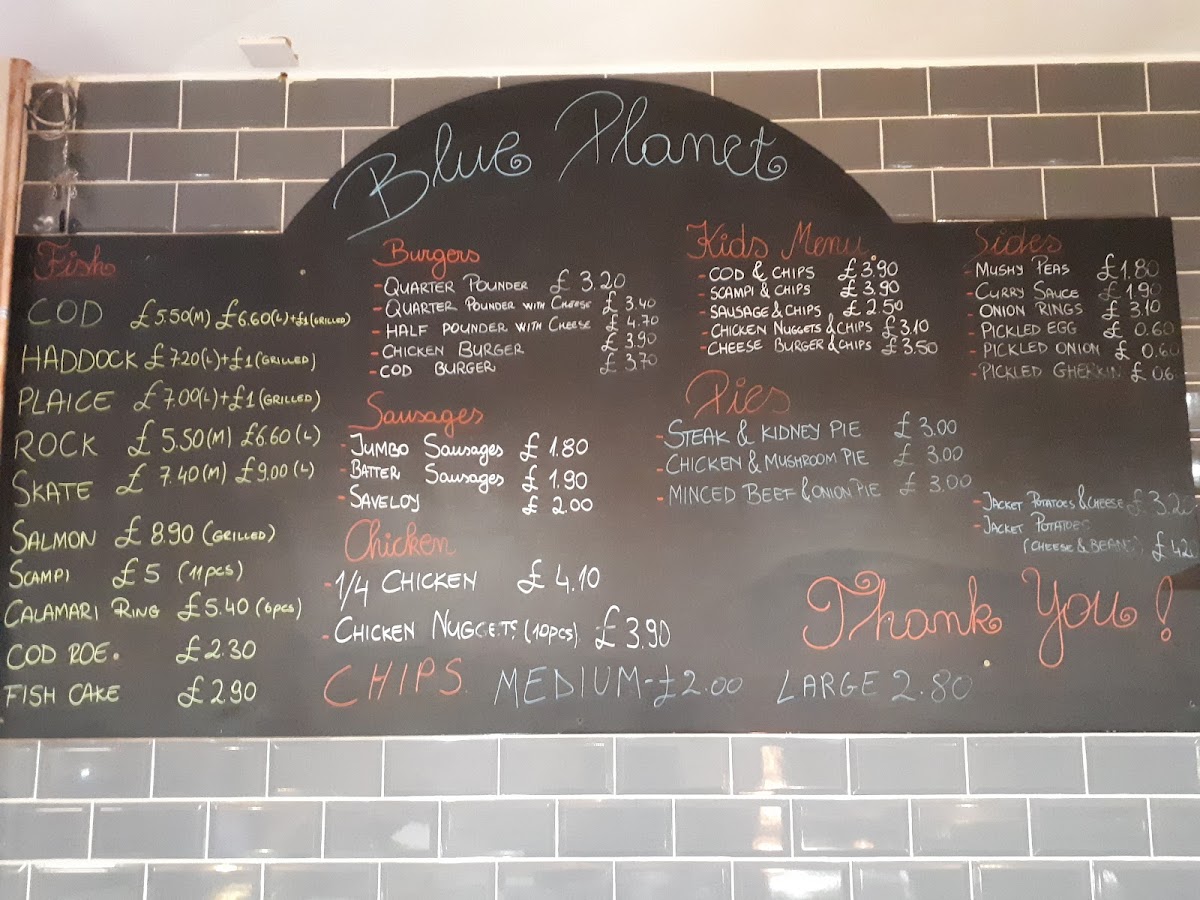 Blue Planet
Fish
COD £5.50(M) £6.60(L)+£1(GRILLED)
HADDOCK £7.20(L)+£1(GRILLED)
PLAICE £7.00(L)+£1(GRILLED)
ROCK £5.50(M) £6.60(L)
SKATE £7.40(M) £9.00(L)
SALMON £8.90 (GRILLED)
SCAMPI £5 (11PCS)
CALAMARI RING £5.40(6PCS)
COD ROE. £2.30
FISH CAKE £2.90
Burgers
-QUARTER POUNDER £3.20
-QUARTER POUNDER WITH CHEESE £3.40
-HALF POUNDER WITH CHEESE £4.70
-CHICKEN BURGER £3.90
-COD BURGER £3.70
Sausages
-JUMBO SAUSAGES £1.80
-BATTER SAUSAGES £1.90
-SAVELOY £2.00
Chicken
-1/4 CHICKEN £4.10
-CHICKEN NUGGETS (10PCS) £3.90
CHIPS MEDIUM-£2.00 LARGE 2.80
Kids Menu
-COD & CHIPS £3.90
-SCAMPI & CHIPS £3.90
-SAUSAGE & CHIPS £2.50
-CHICKEN NUGGETS & CHIPS £3.10
-CHEESE BURGER & CHIPS £3.50
Pies
-STEAK & KIDNEY PIE £3.00
-CHICKEN & MUSHROOM PIE £3.00
-MINCED BEEF & ONION PIE £3.00
Sides
-MUSHY PEAS £1.80
-CURRY SAUCE £1.90
-ONION RINGS £3.10
-PICKLED EGG £0.60
-PICKLED ONION £0.60
-PICKLED GHERKIN £0.6
-JACKET POTATOES & CHEESE £3.20
-JACKET POTATOES
(CHEESE & BEANS) £4.20
Thank You!